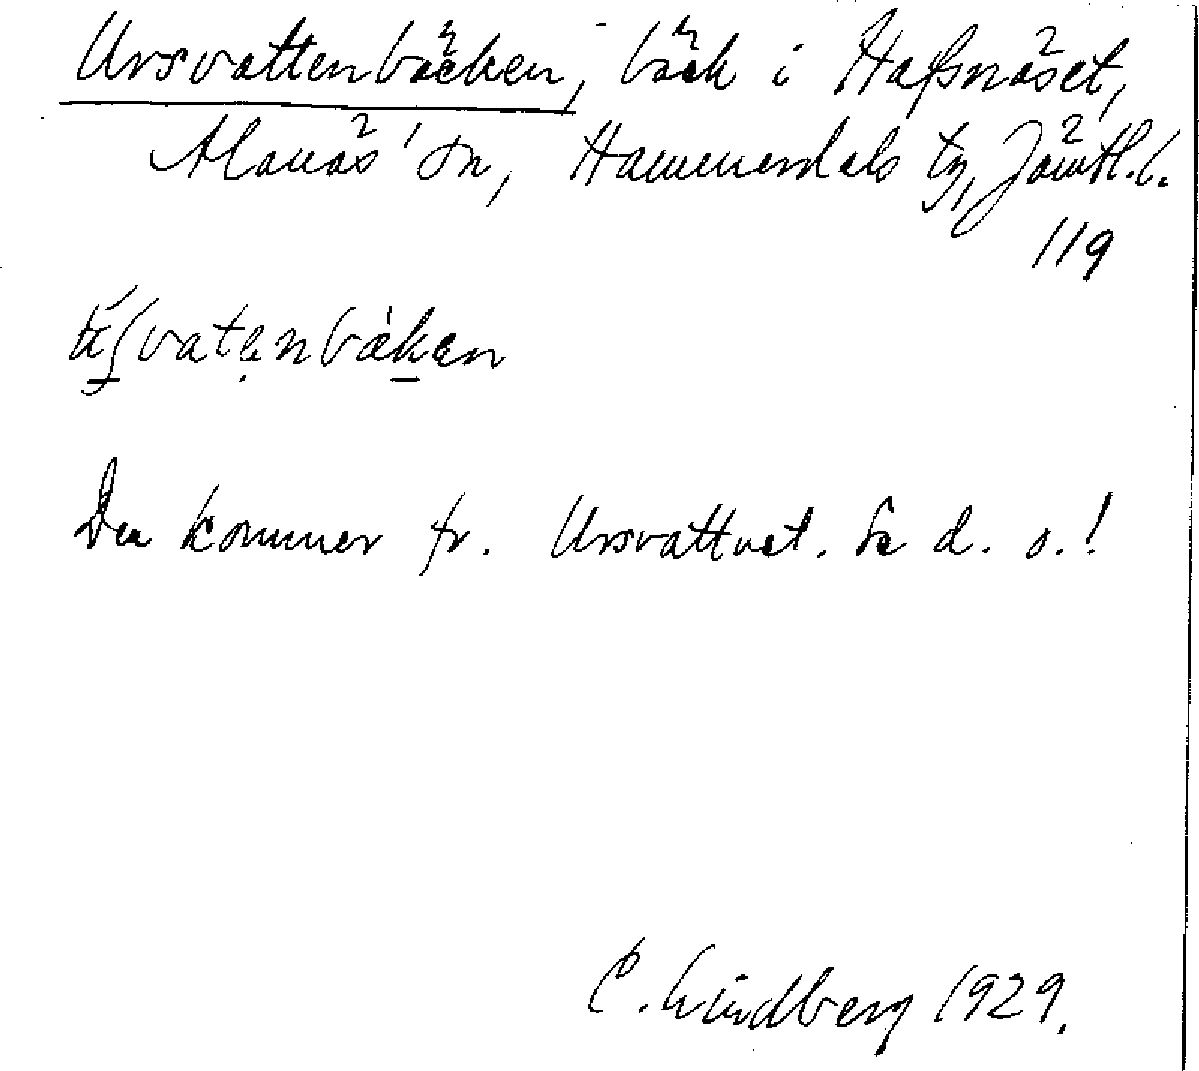 Ursvattenbäcken, bäck i Hafsnäset,
Alanäs sn, Hammerdals tg, Jämtl. l.
119
Den kommer fr. Ursvattnet. Se d. o.!
C. Lindberg 1929.